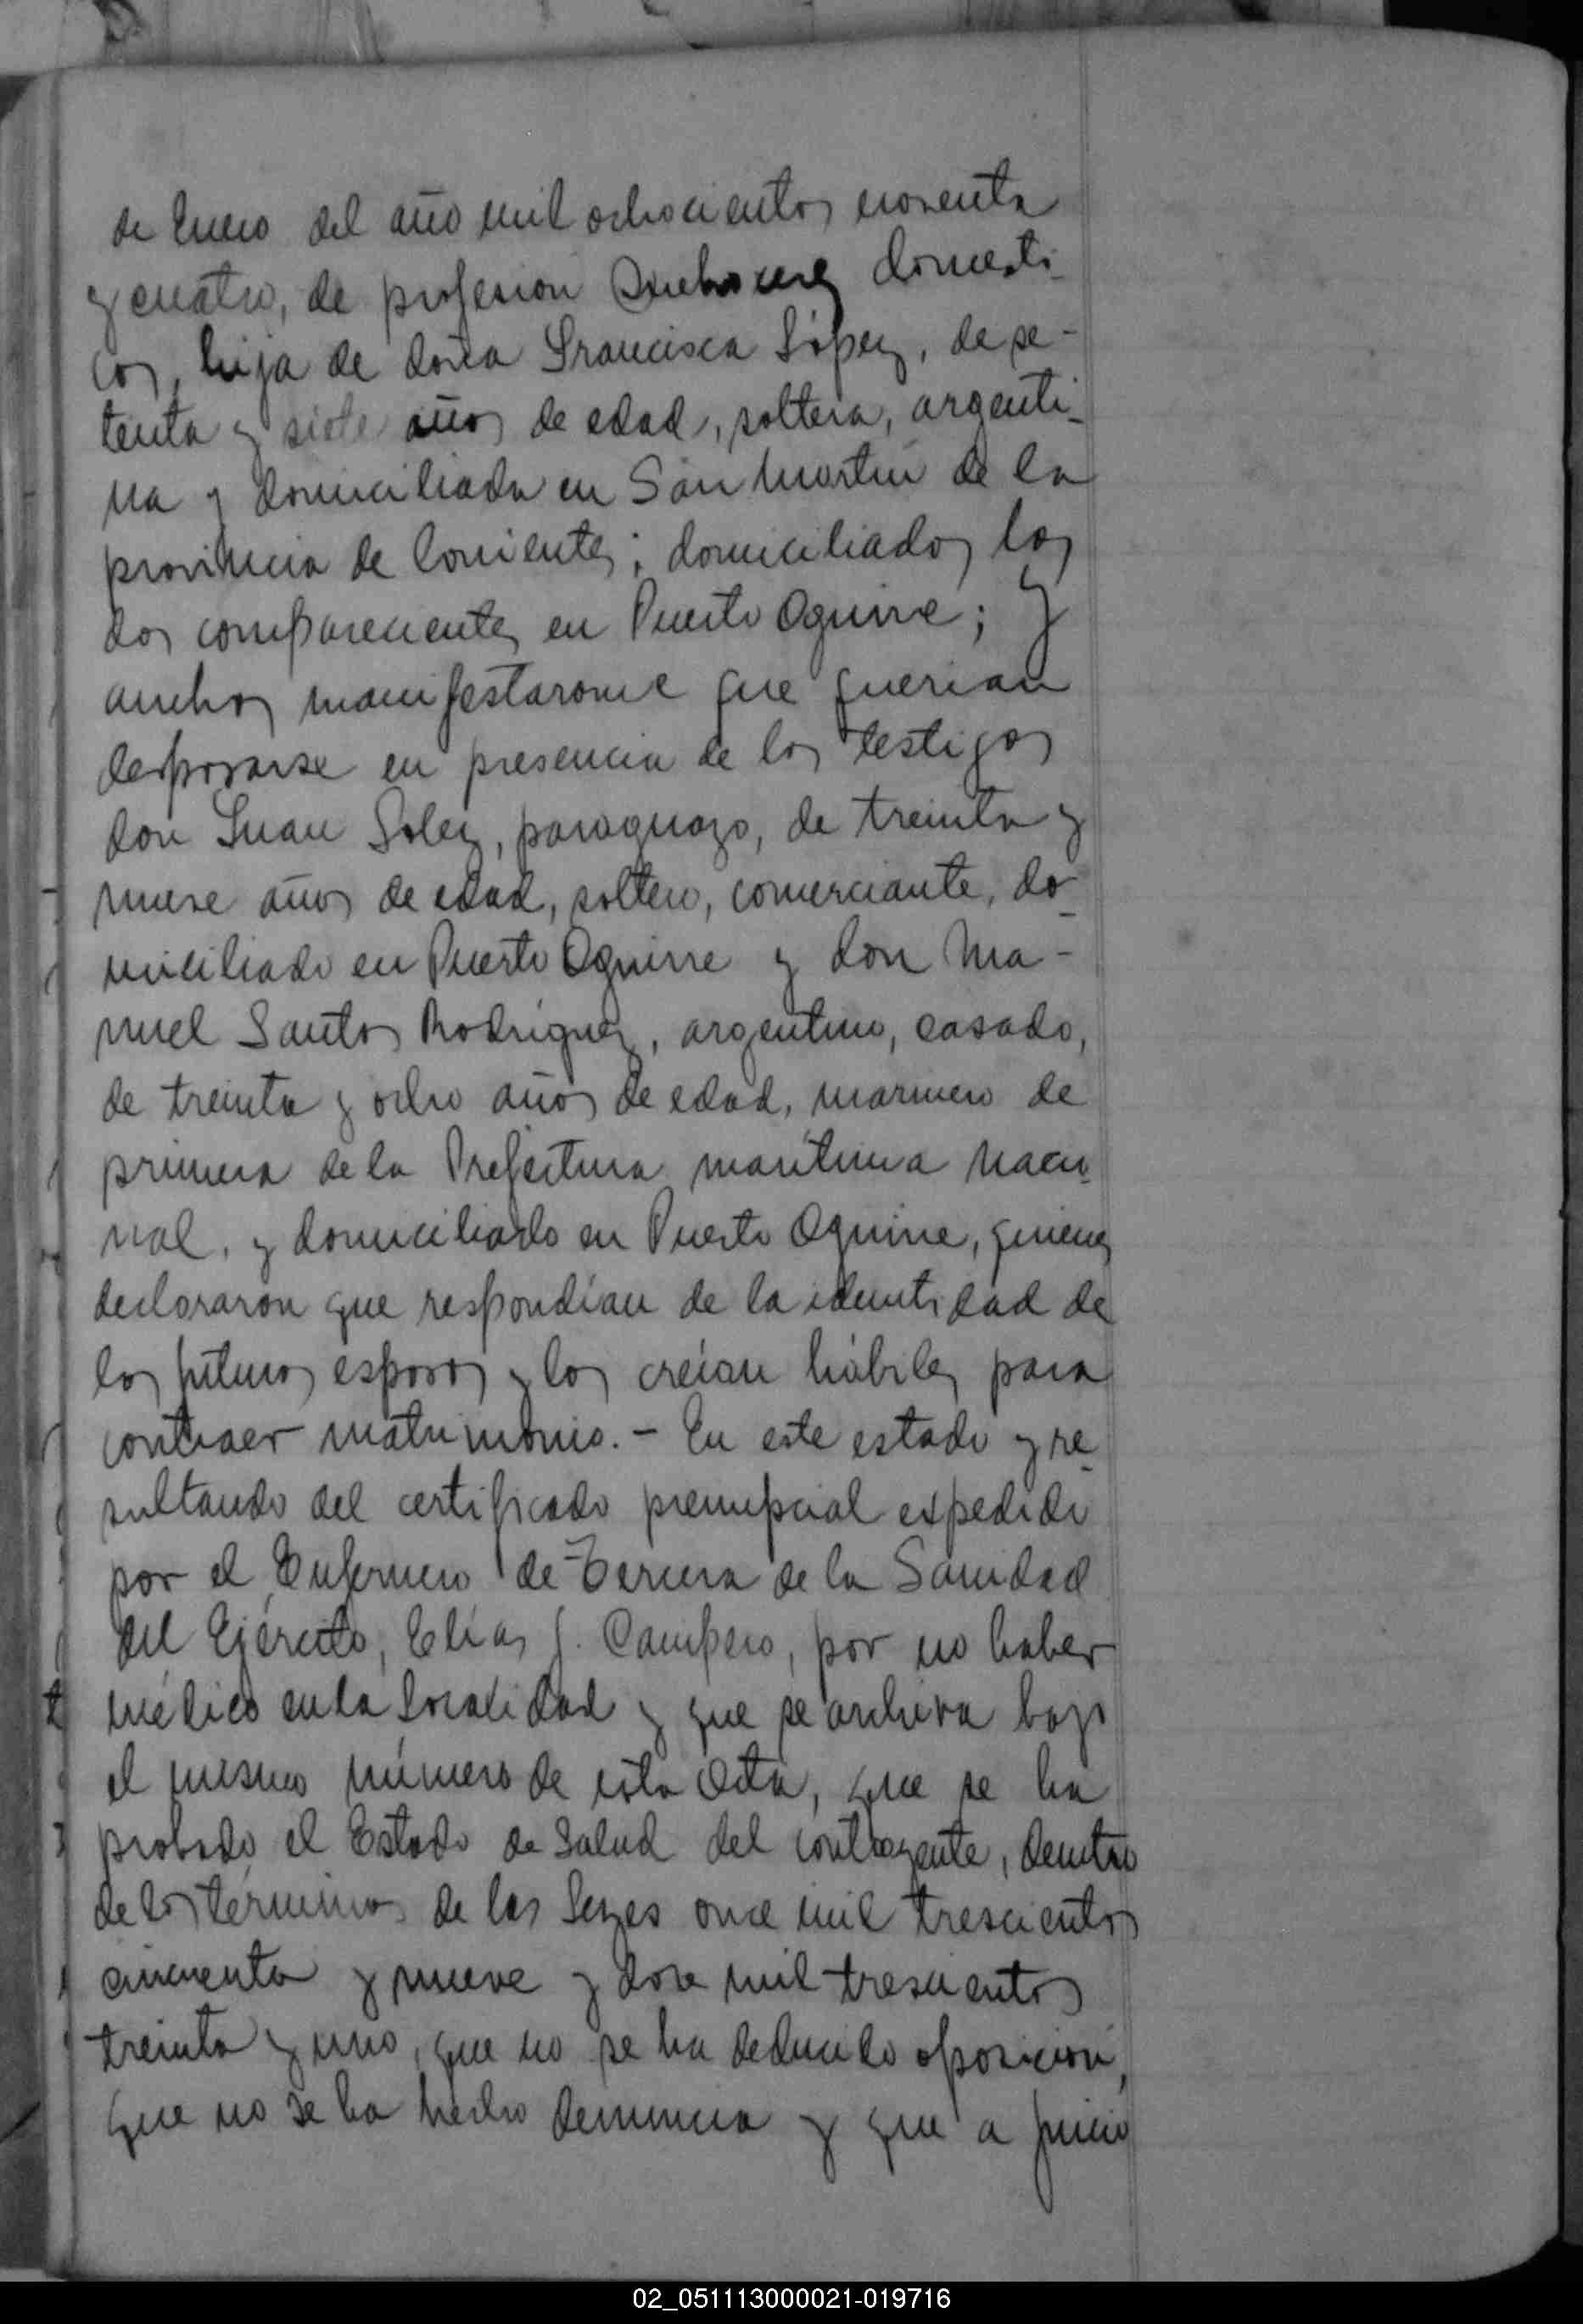 de Enero del año mil ochocientos noventa
y cuatro, de profesión Quehaceres domésti-
cos, hija de doña Francisca López, de se-
tenta y siete años de edad, soltera, argenti-
na y domiciliada en San Martín de la
provincia de Corrientes; domiciliados los
dos comparecientes en Puerto Aguirre; y
ambos manifestaronme que querían
desposarse en presencia de los testigos
don Juan Soley, paraguayo, de treinta y
nueve años de edad, soltero, comerciante, do-
miciliado en Puerto Aguirre y don Ma-
nuel Santos Rodríguez, argentino, casado,
de treinta y ocho años de edad, marinero de
primera de la Prefectura marítima nacio-
nal, y domiciliado en Puerto Aguirre, quienes
declararon que respondían de la identidad de
los futuros esposos y los creían hábiles para
contraer matrimonio. - En este estado y re-
sultando del certificado prenupcial expedido
por el Enfermero de Tercera de la Sanidad
del Ejército, Elías J. Campero, por no haber
médico en la localidad y que se archiva bajo
el mismo número de esta Acta, que se ha
probado el Estado de Salud del contrayente, dentro
de los términos de las Leyes once mil trescientos
cincuenta y nueve y doce mil trescientos
treinta y uno, que no se ha deducido oposición,
que no se ha hecho denuncia y que a juicio
02_051113000021-019716